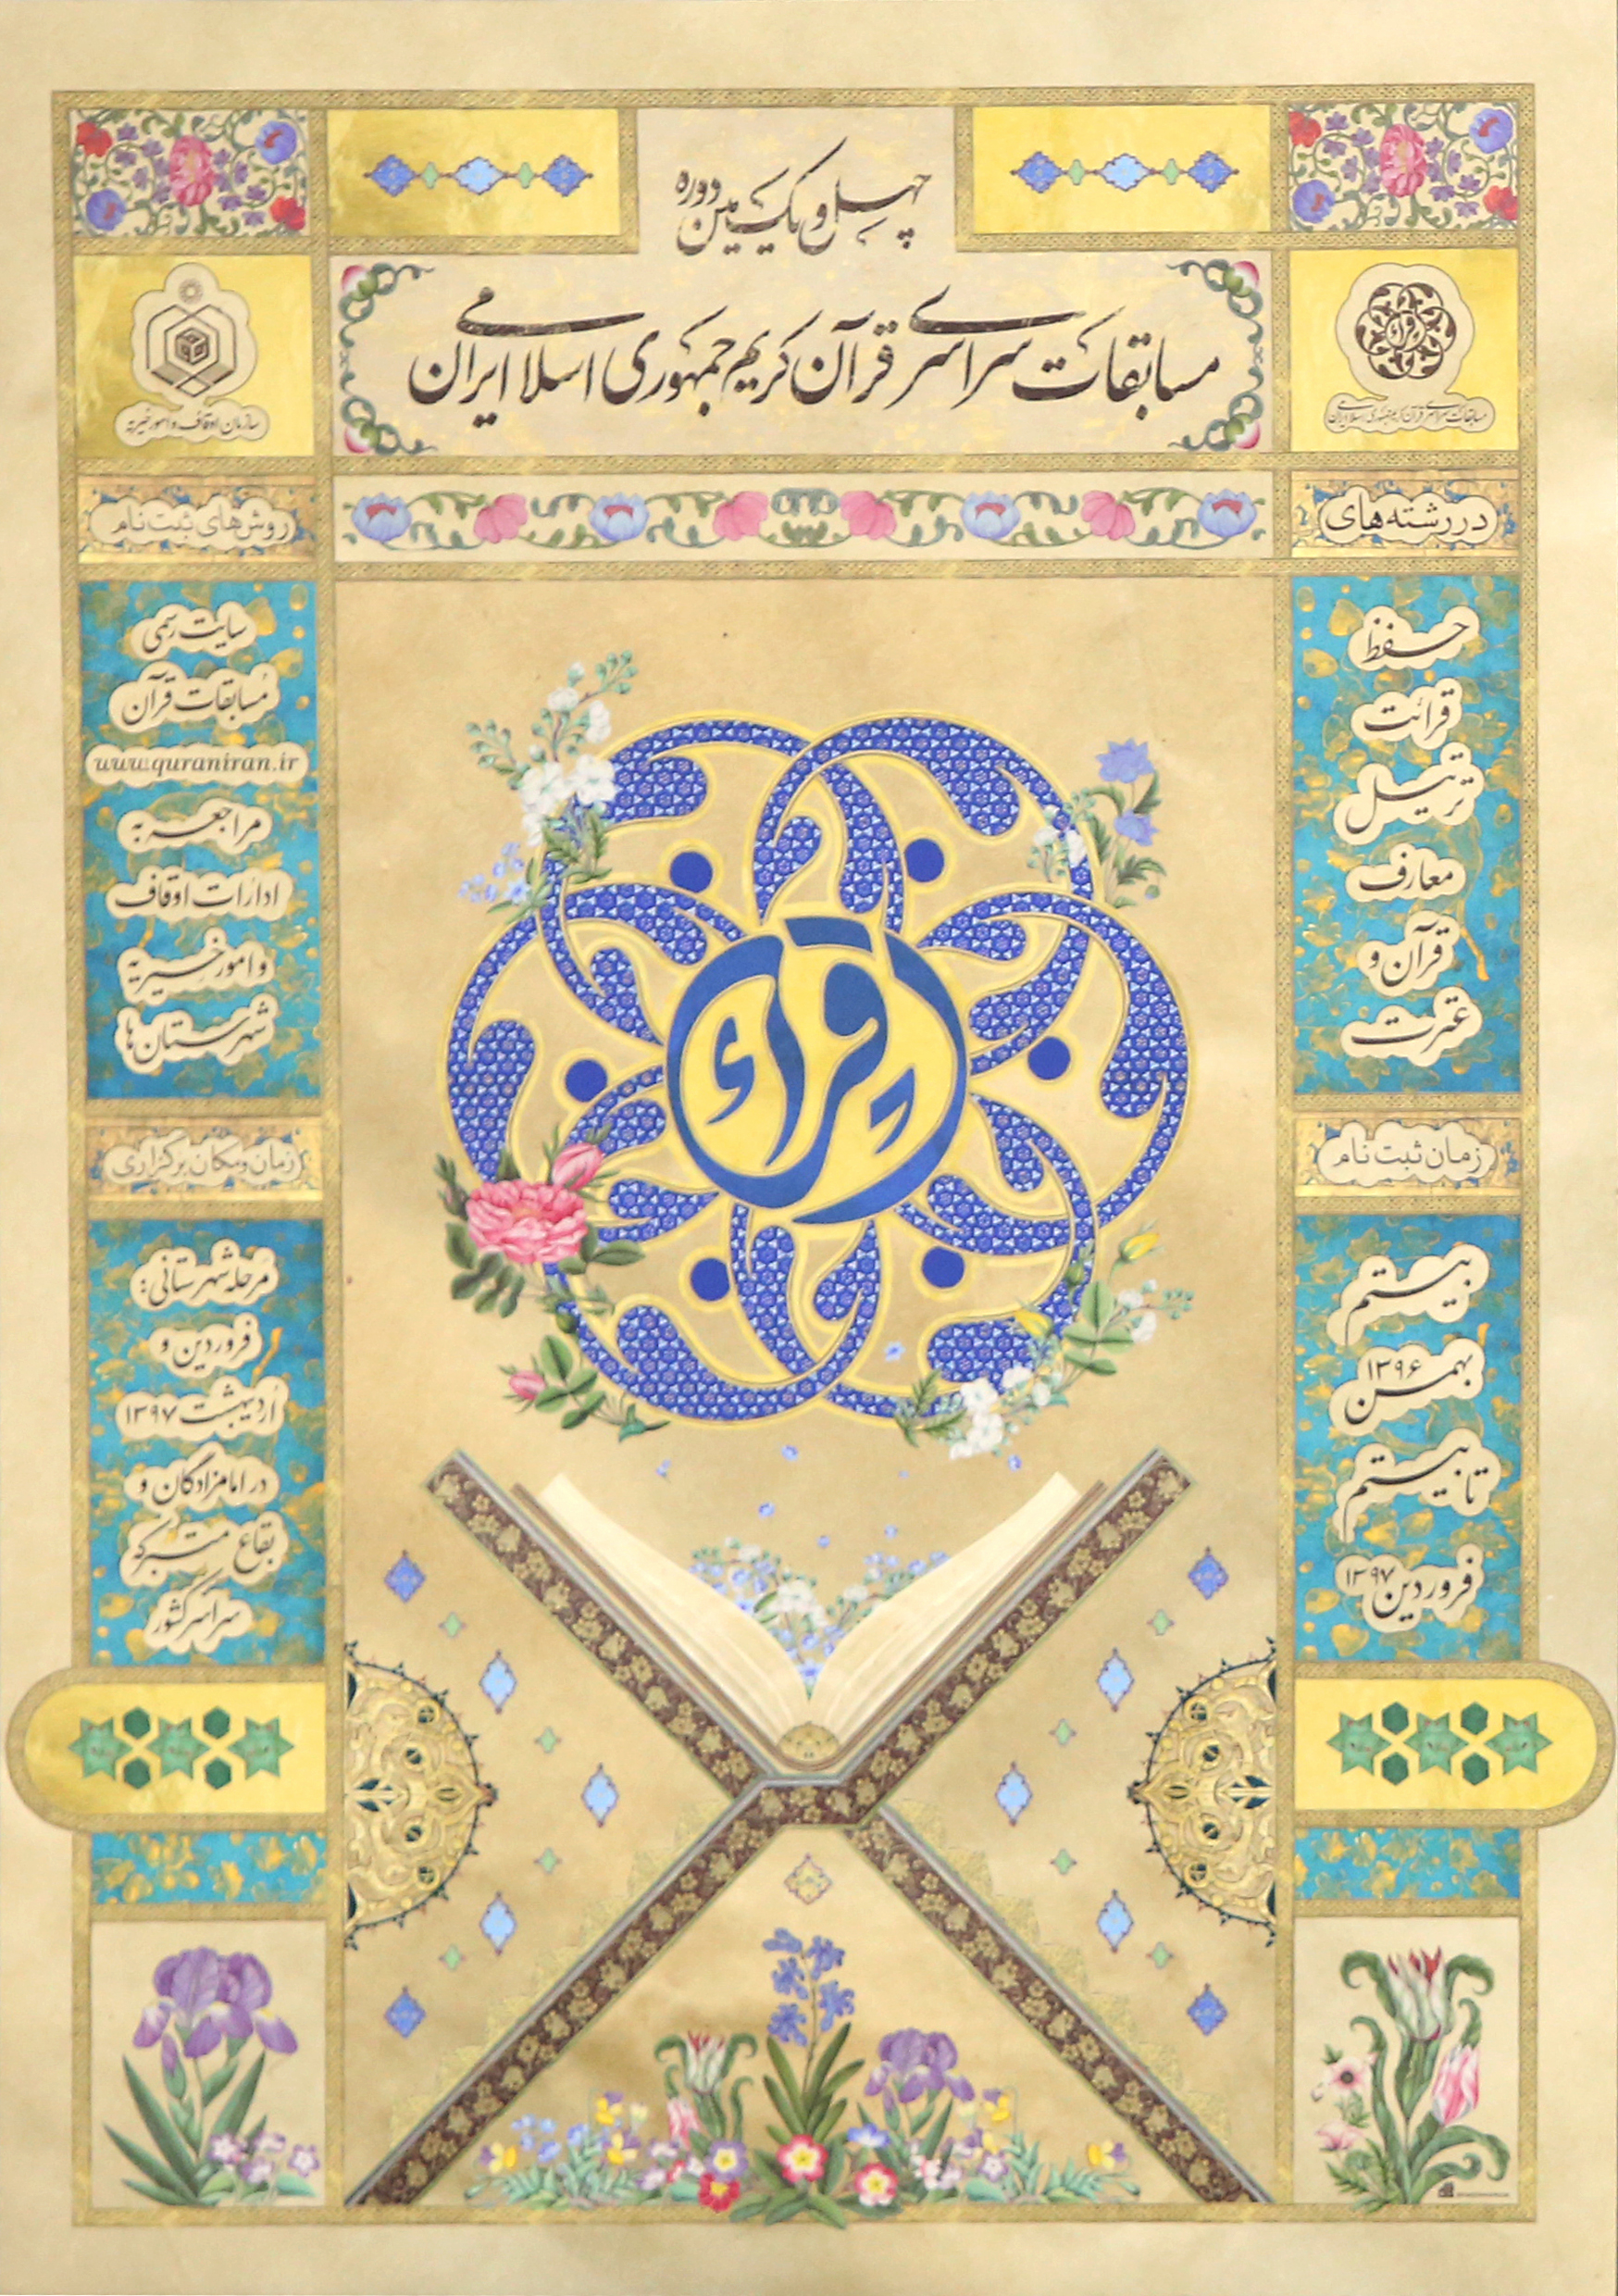 چهل و یکمین دوره
مسابقات سراسری قرآن کریم جمهوری اسلامی ایران
مسابقات سراسری قرآن کریم جمهوری اسلامی ایران
سازمان اوقاف و امور خیریه
در رشته‌های
حفظ
قرائت
ترتیل
معارف
قرآن و
عترت
زمان ثبت نام
بیستم
بهمن ۱۳۹۶
تا بیستم
فروردین ۱۳۹۷
روش‌های ثبت نام
سایت رسمی
مسابقات قرآن
www.quraniran.ir
مراجعه به
ادارات اوقاف
و امور خیریه
شهرستان‌ها
زمان و مکان برگزاری
مرحله شهرستانی:
فروردین و
اردیبهشت ۱۳۹۷
در امامزادگان و
بقاع متبرکه
سراسر کشور
اقراء